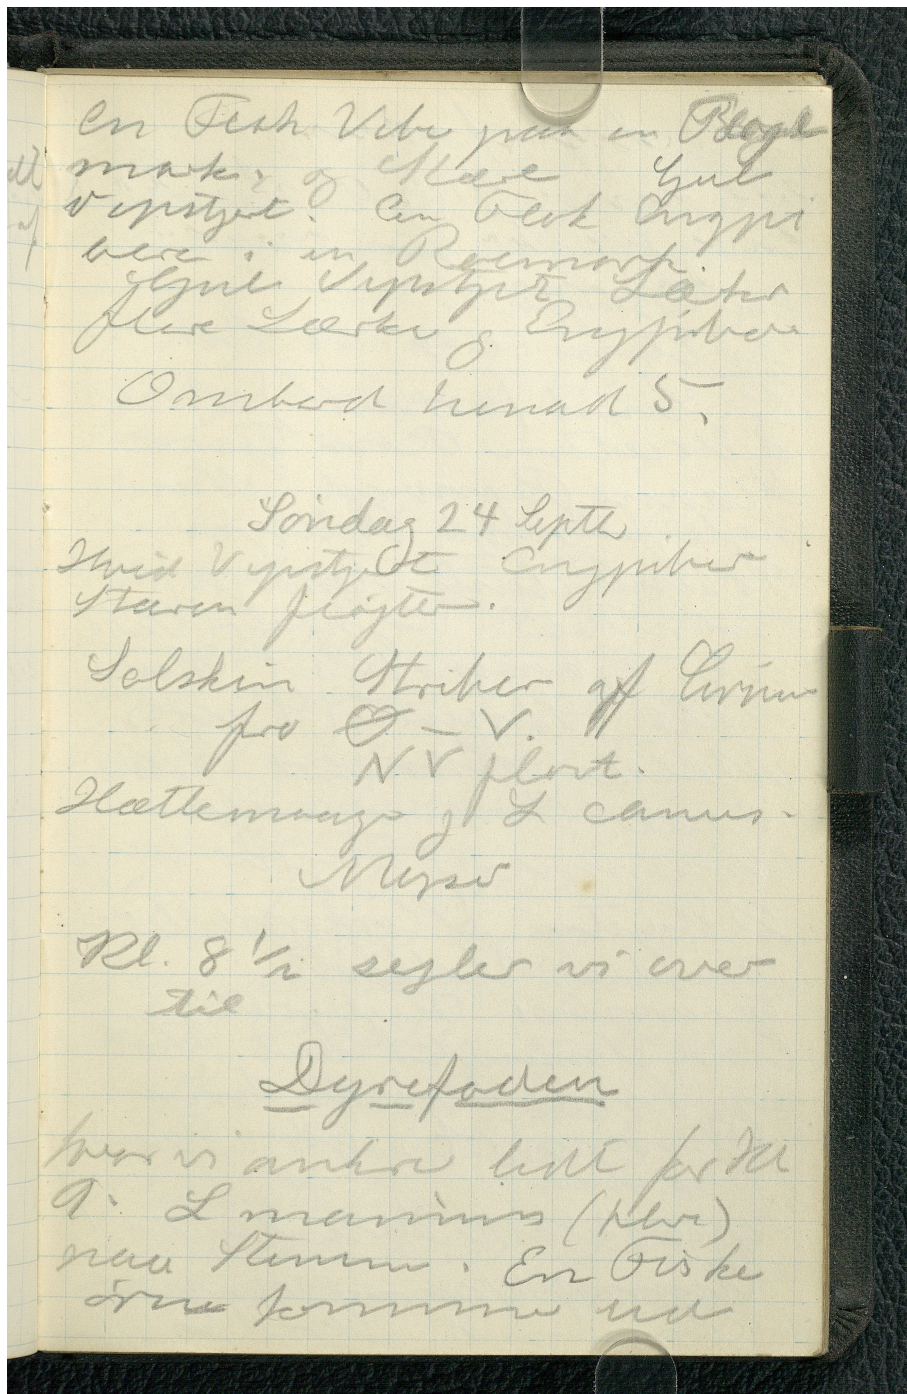 En Flok Viber paa en Pløje
mark, og Stære Gul
Vipstjert. En Flok Engpi
bere i en Roemark
Gul Vipstjert
flere Lærker og Engpibere
Ombord henad 5.
Søndag 24 Septb
Hvid Vipstjert Engpiber
Stæren fløjter.
Solskin Striber af Cirrus
fra Ø – V.
NV flovt.
Hættemaage og L canus.
Mejser
Kl. 8 1/2 sejler vi over
til
Dyrefoden
hvor vi ankre lidt før Kl
9. L marinus (flere)
paa Stenene. En Fiske
ørn kommer ud